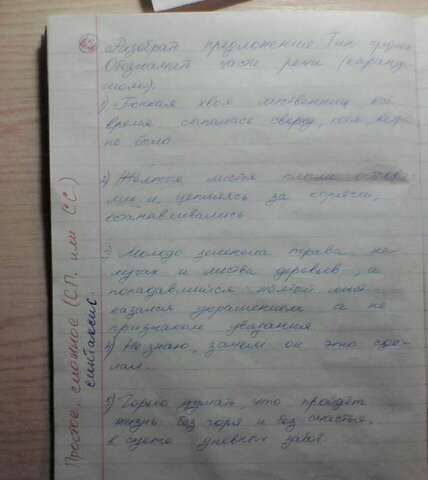 Разобрать предложение. Тип придат
Обозначить части речи (каранд-
ашом).
1) Тонкая хвоя лиственниц всё
время сыпалась сверху, хотя ветра
не было.
2) Жёлтые листья плыли
и, цепляясь за коряги,
останавливались
3) Молодо зеленела трава на
лугах и листва деревьев, а
попадавшийся жёлтый лист
казался украшением а не
признаком увядания
4) Не знаю, зачем он это сде-
лал.
5) Горько думать, что пройдёт
жизнь без горя и без счастья,
в суете дневных забот
Простое, сложное (СП. или СС)
синтаксис.